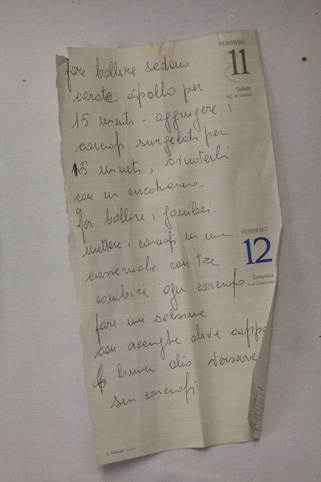 FEBBRAIO
11
Sabato
N.S. di Lourdes
fare bollire sedano
carote cipolla per
15 minuti - aggiungere i
carciofi surgelati per
15 minuti, svuotarli
con un cucchiaino.
Poi bollire i gamberi.
mettere i carciofi in una
casseruola con tre
ogni carciofo
fare una salsina
con acciughe olive capperi
limon olio versare
sui carciofi
FEBBRAIO
12
Domenica